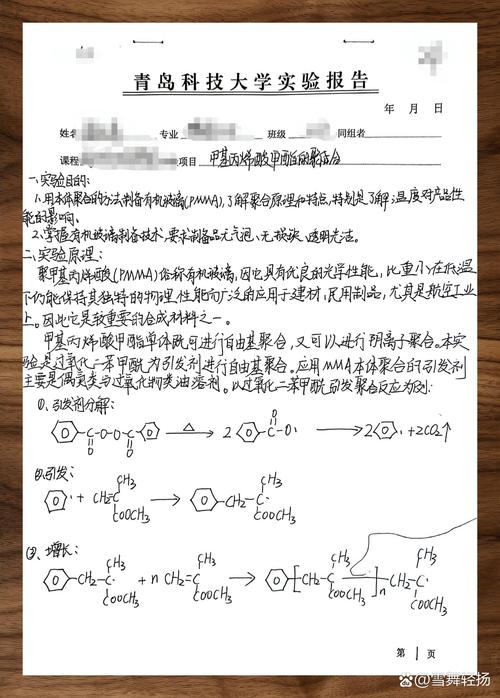 青岛科技大学实验报告
年 月 日
姓名 专业 班级 同组者
课程 项目 甲基丙烯酸甲酯的聚合
一、实验目的:
1.用本体聚合的方法制备有机玻璃(PMMA),了解聚合原理和特点,特别是了解温度对产品性
能的影响。
2.掌握有机玻璃制备技术,要求制备品无气泡、无 透明光洁。
二、实验原理:
聚甲基丙烯酸(PMMA)俗称有机玻璃,因它具有优良的光学性能,比重小,在低温
下仍能保持其独特的物理性能而广泛的应用于建材,民用制品,尤其是航空工业
上。因此它是致重要的合成材料之一。
甲基丙烯酸甲酯单体既可进行自由基聚合,又可以进行阴离子聚合。本实
验是过氧化二苯甲酰为引发剂进行自由基聚合。应用MMA本体聚合的引发剂
主要是偶氮类与过氧化物类油溶剂。以过氧化二苯甲酰引发聚合反应为例:
①、引发剂分解:
C-O-O-C △ 2 C-O· 2 · +2CO₂↑
O O O
②、引发:
CH₃ CH₃
· + CH₂=C CH₂-C·
COOCH₃ COOCH₃
③、增长:
CH₃ CH₃ CH₃ CH₃
CH₂-C· + n CH₂=C [CH₂-C]n CH₂-C·
COOCH₃ COOCH₃ COOCH₃ COOCH₃
第 1 页
@雪舞轻扬